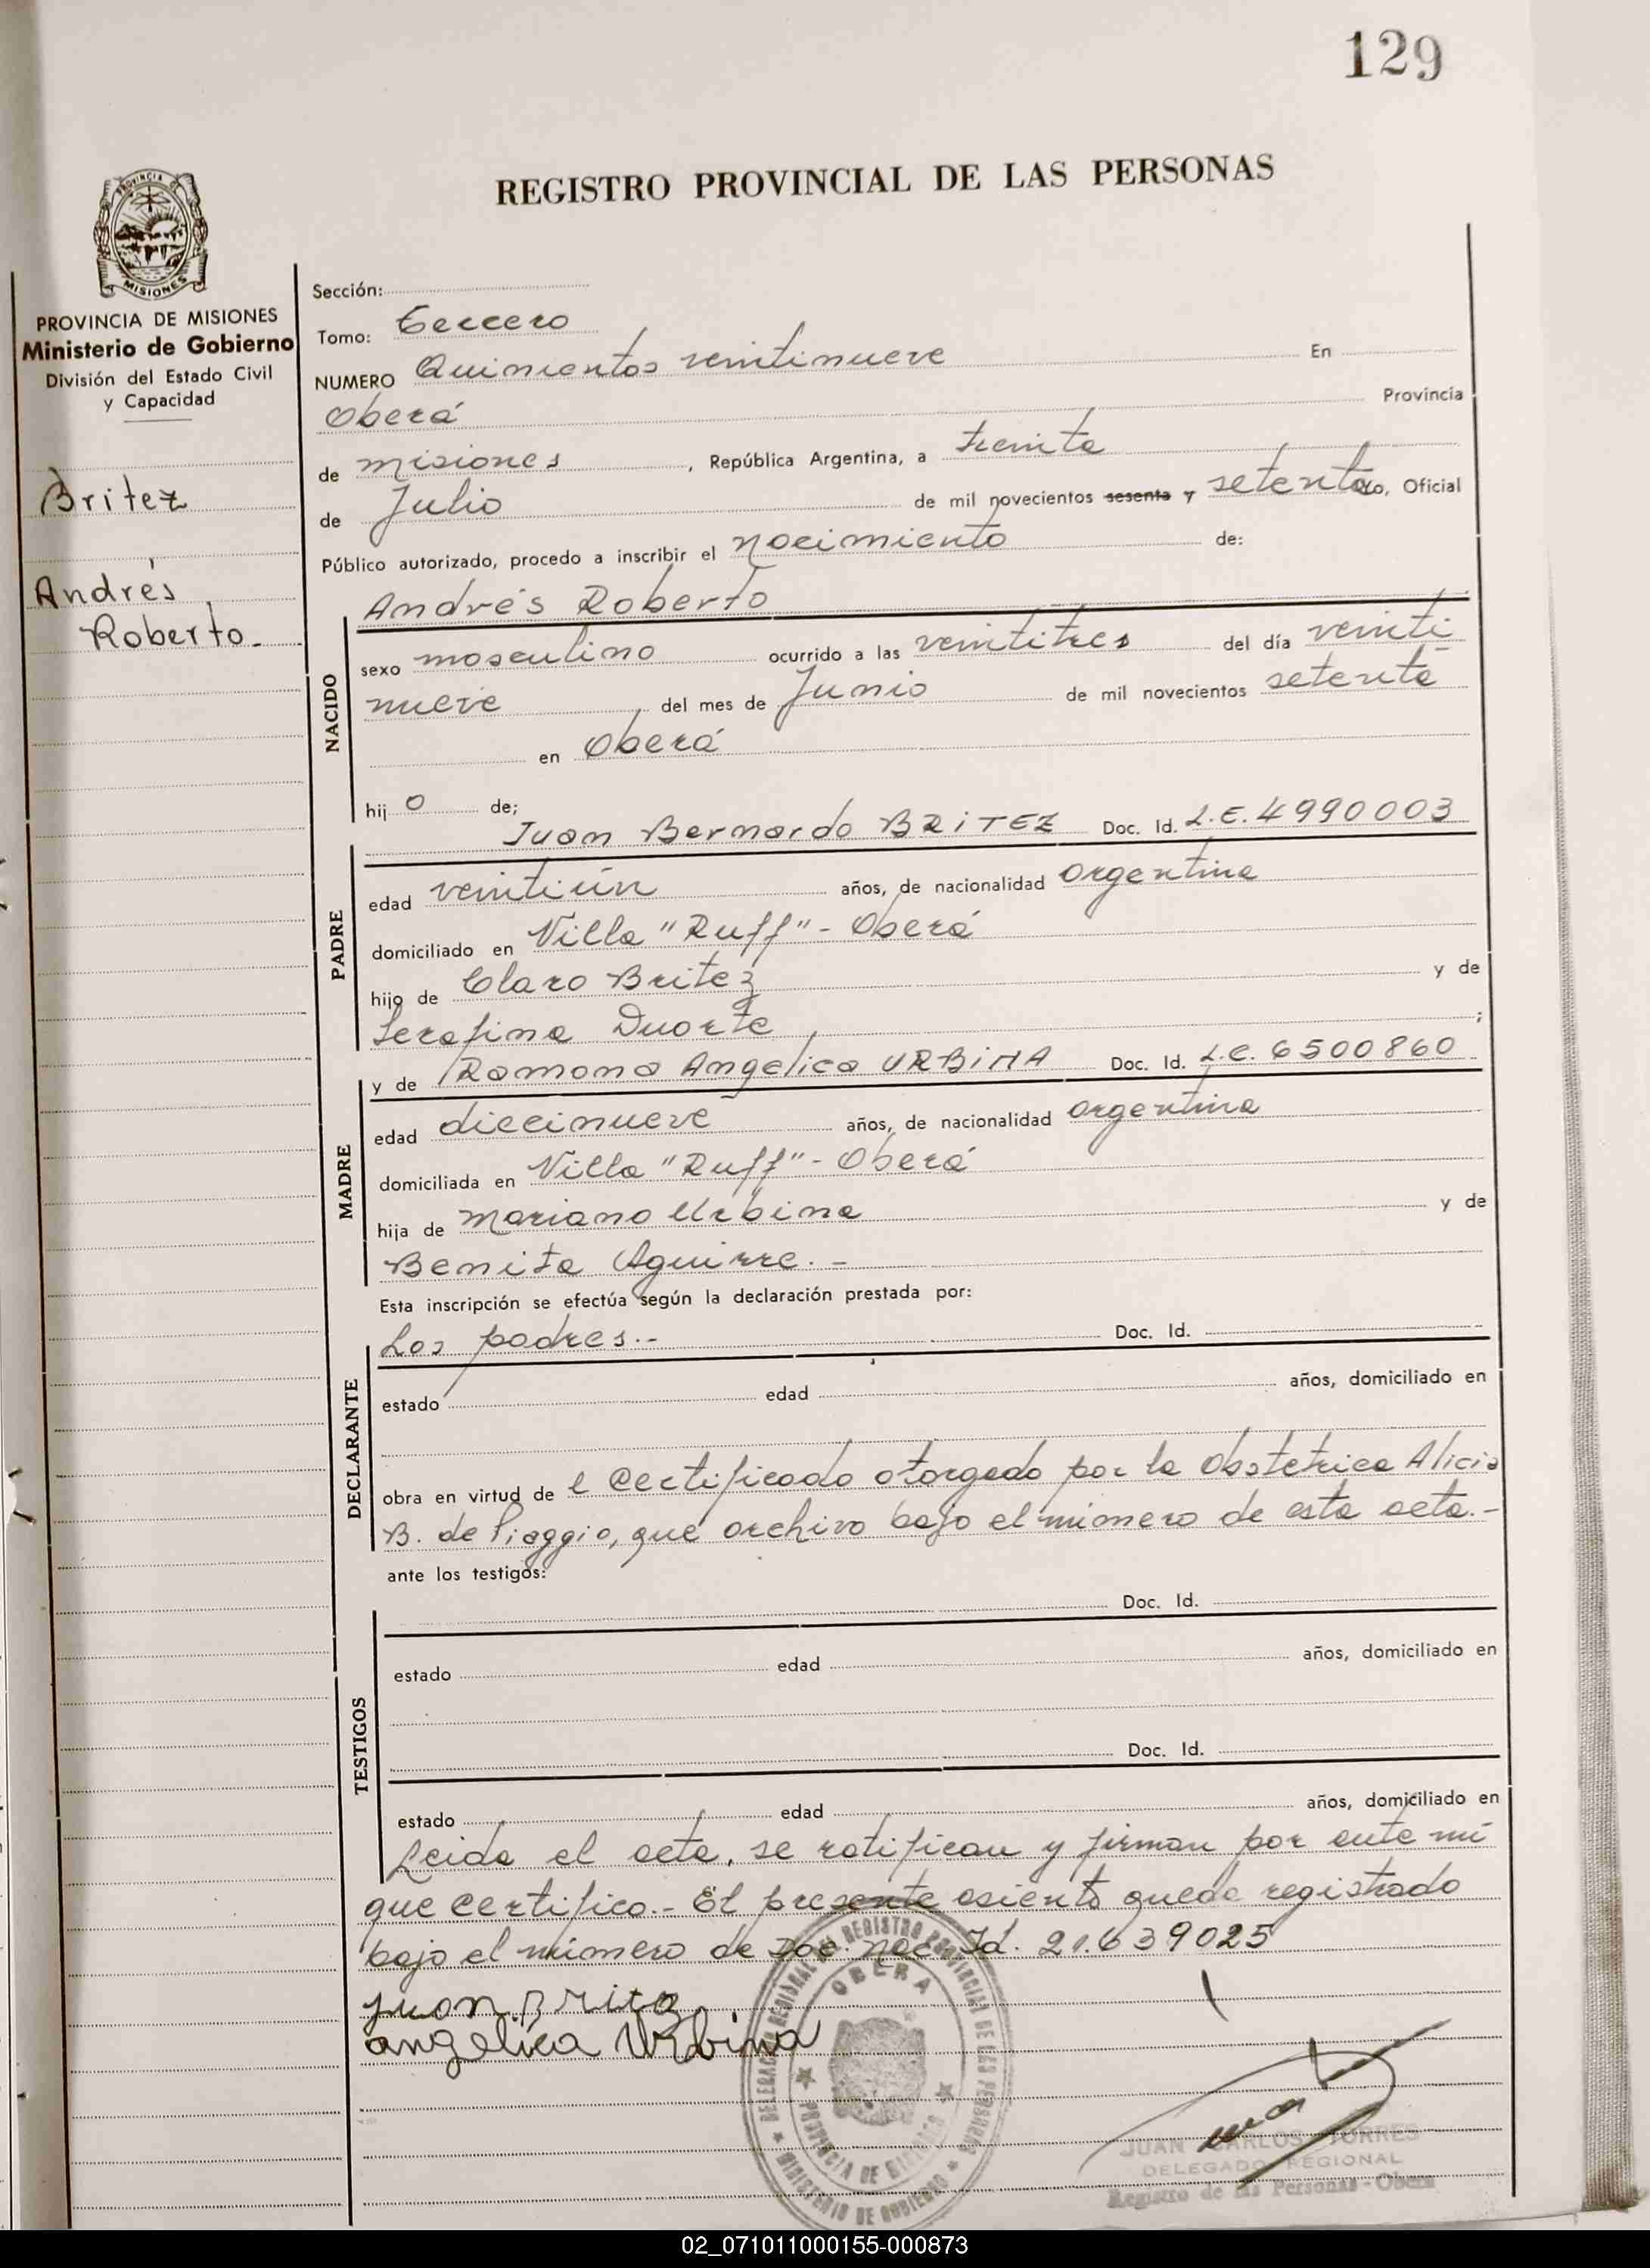 129
REGISTRO PROVINCIAL DE LAS PERSONAS
PROVINCIA DE
MISIONES
PROVINCIA DE MISIONES
Ministerio de Gobierno
División del Estado Civil
y Capacidad
Britez
Andrés
Roberto.
Sección:
Tomo: Tercero
NUMERO Quinientos veintinueve En
Oberá Provincia
de Misiones, República Argentina, a treinta
de Julio de mil novecientos sesenta y setenta, Oficial
Público autorizado, procedo a inscribir el nacimiento de:
NACIDO
Andrés Roberto
sexo masculino ocurrido a las veintitres del día veinti
nueve del mes de Junio de mil novecientos setenta
en Oberá
hijo de;
PADRE
Juan Bernardo BRITEZ Doc. Id. L.E. 4990003
edad veintiún años, de nacionalidad argentina
domiciliado en Villa "Ruff" - Oberá
hijo de Claro Britez y de
Serafina Duarte ;
MADRE
y de Ramona Angelica URBINA Doc. Id. L.C. 6500860
edad diecinueve años, de nacionalidad argentina
domiciliada en Villa "Ruff" - Oberá
hija de Mariano Urbina y de
Benita Aguirre. -
Esta inscripción se efectúa según la declaración prestada por:
DECLARANTE
Los padres.- Doc. Id.
estado edad años, domiciliado en
obra en virtud de el certificado otorgado por la Obstetrica Alicia
B. de Piaggio, que archivo bajo el número de esta acta.-
ante los testigos:
TESTIGOS
Doc. Id.
estado edad años, domiciliado en
Doc. Id.
estado edad años, domiciliado en
Leida el acta, se ratifican y firman por ante mí
que certifico.- El presente asiento queda registrado
bajo el número de Doc. Nac. Id. 21.639025
Juan Britez
angelica Urbina
DELEGACION REGIONAL DEL REGISTRO PROVINCIAL DE LAS PERSONAS
OBERA
PROVINCIA DE MISIONES
MINISTERIO DE GOBIERNO
JUAN CARLOS TORRES
DELEGADO REGIONAL
Registro de las Personas - Obera
02_071011000155-000873